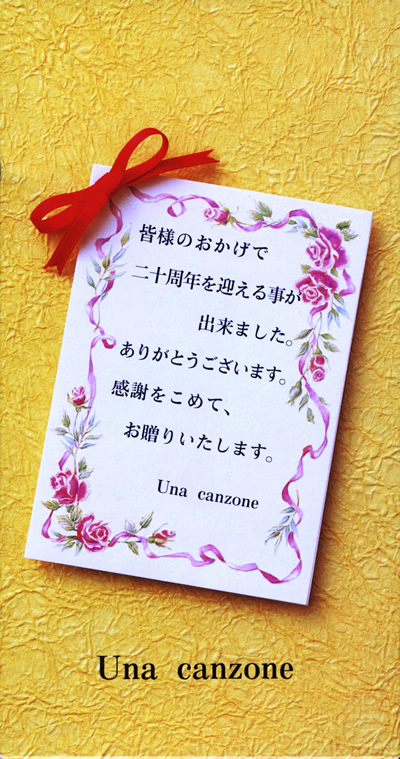 皆様のおかげで
二十周年を迎える事が
出来ました。
ありがとうございます。
感謝をこめて、
お贈りいたします。
Una canzone
Una canzone